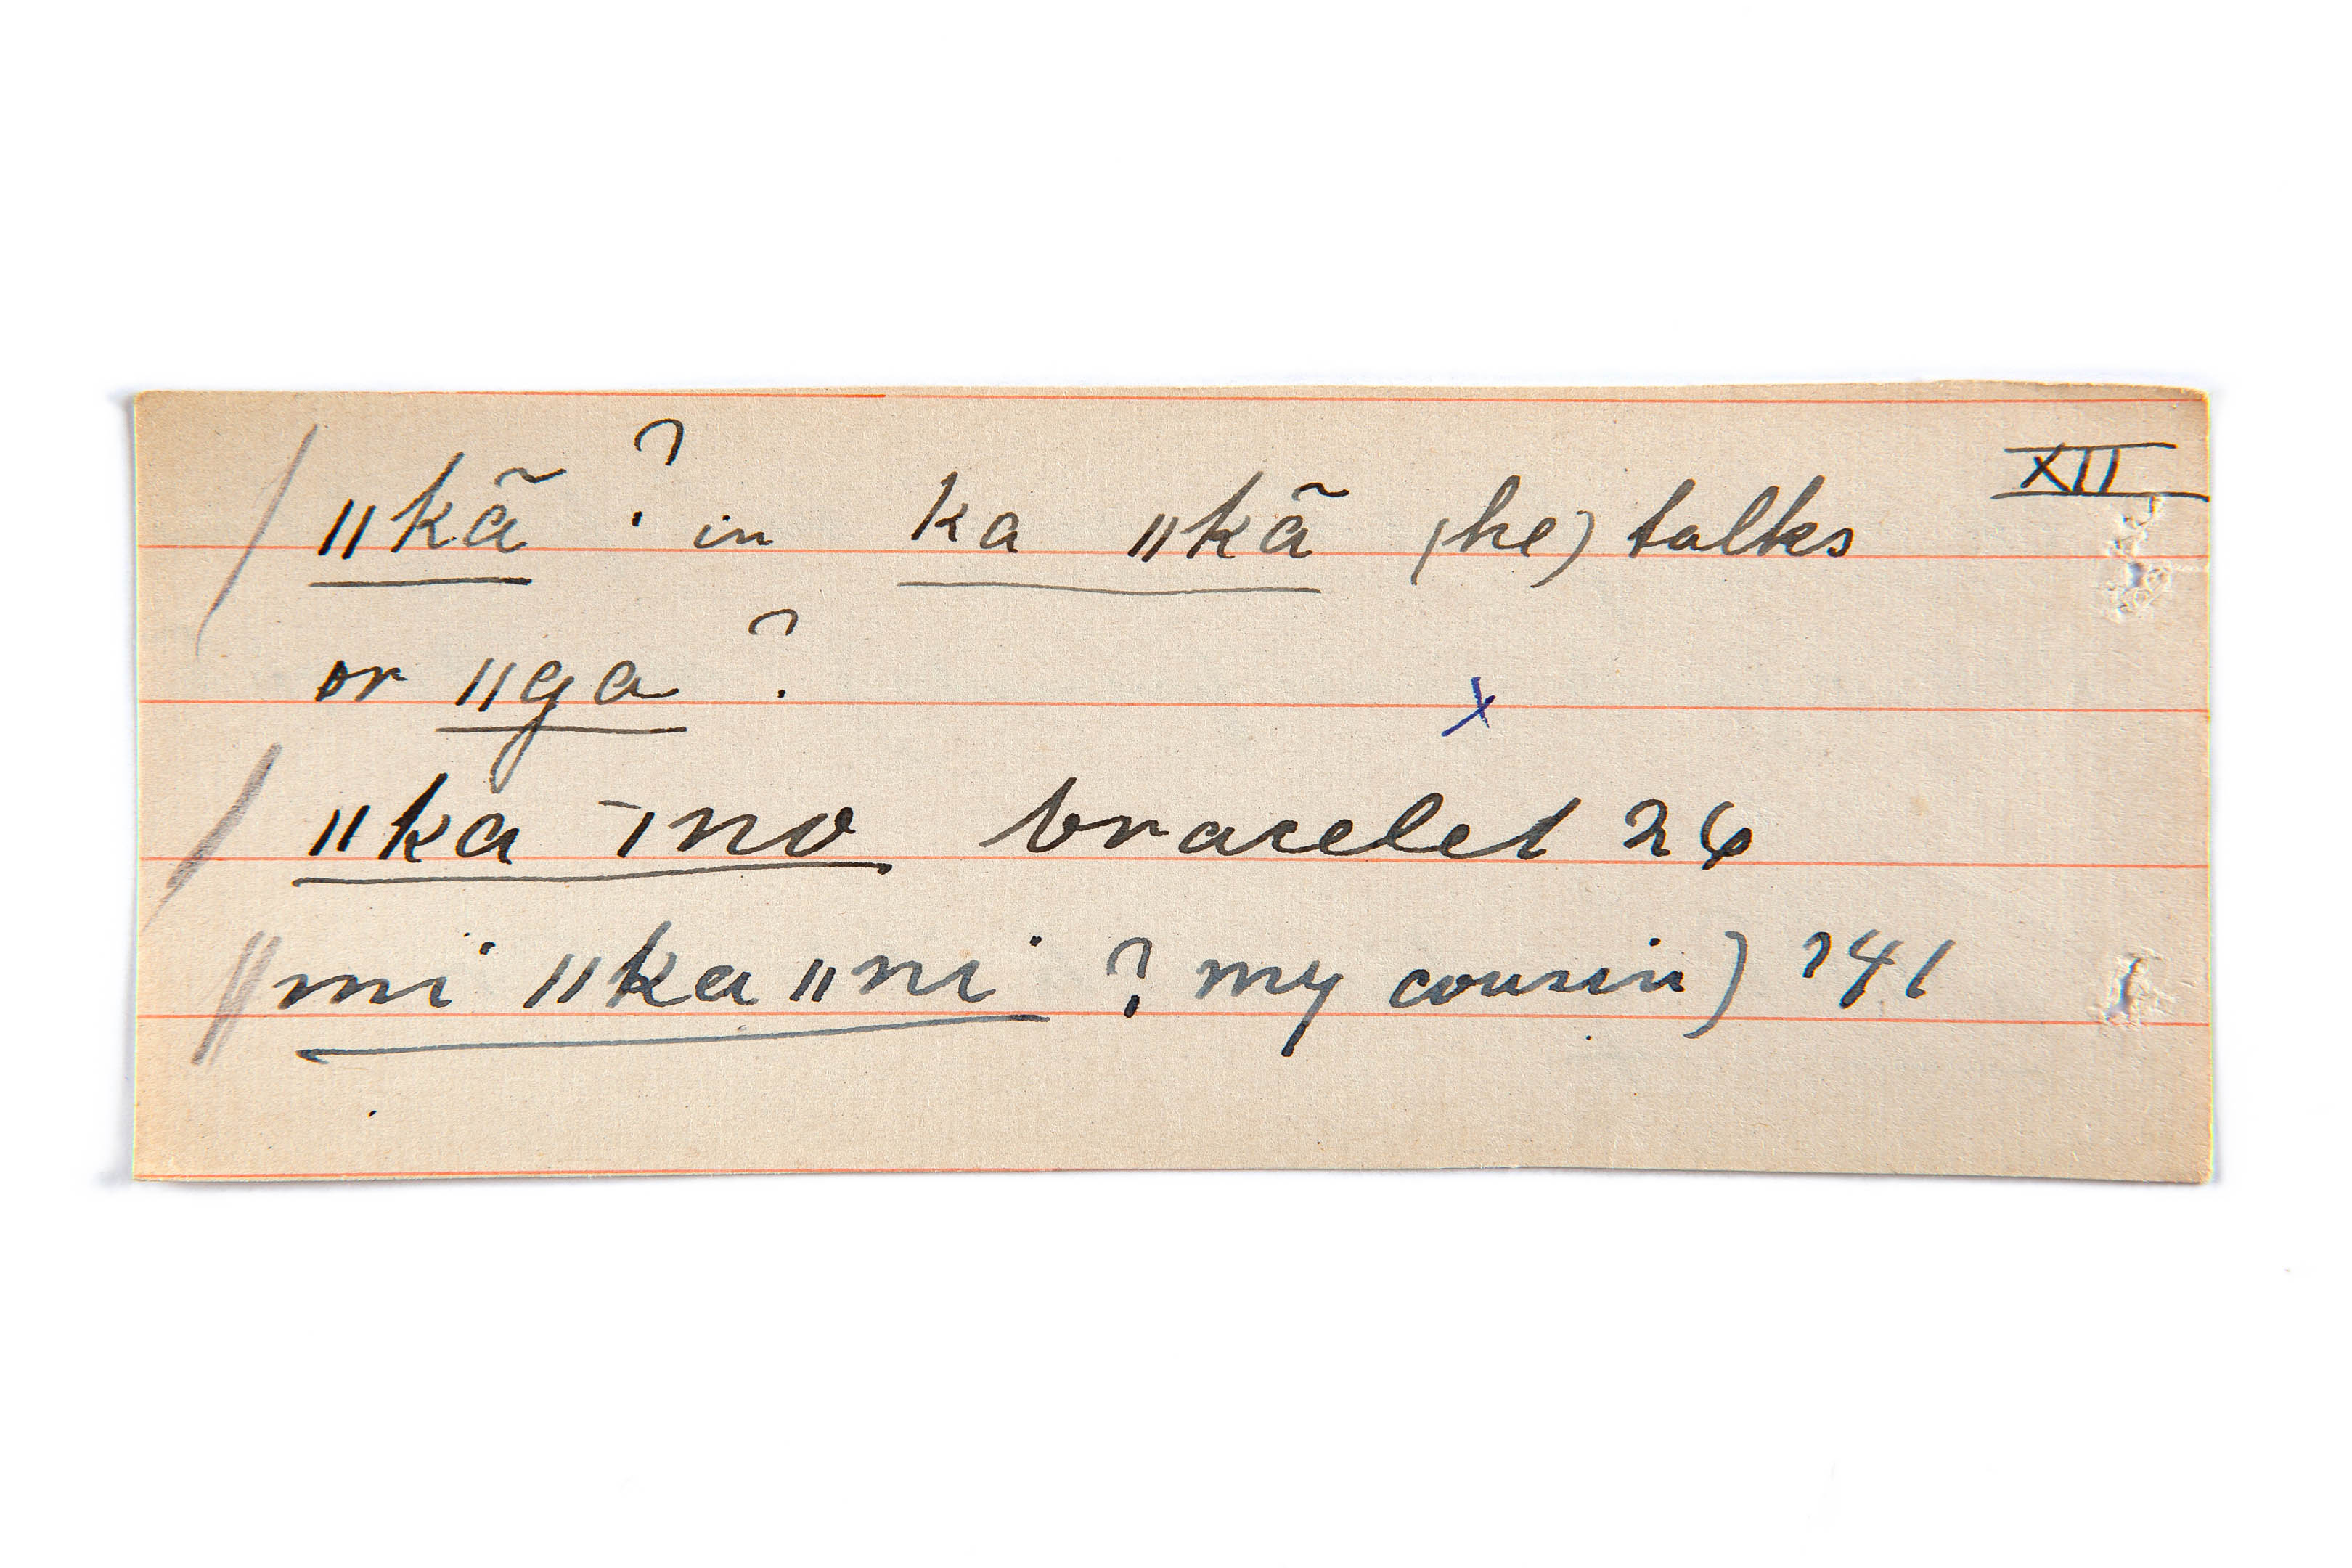 XII
ǁkã ? in ka ǁkã (he) talks
or ǁga ?
x
ǁka īno bracelet 26
mi ǁkaǁni ? my cousin) ?41